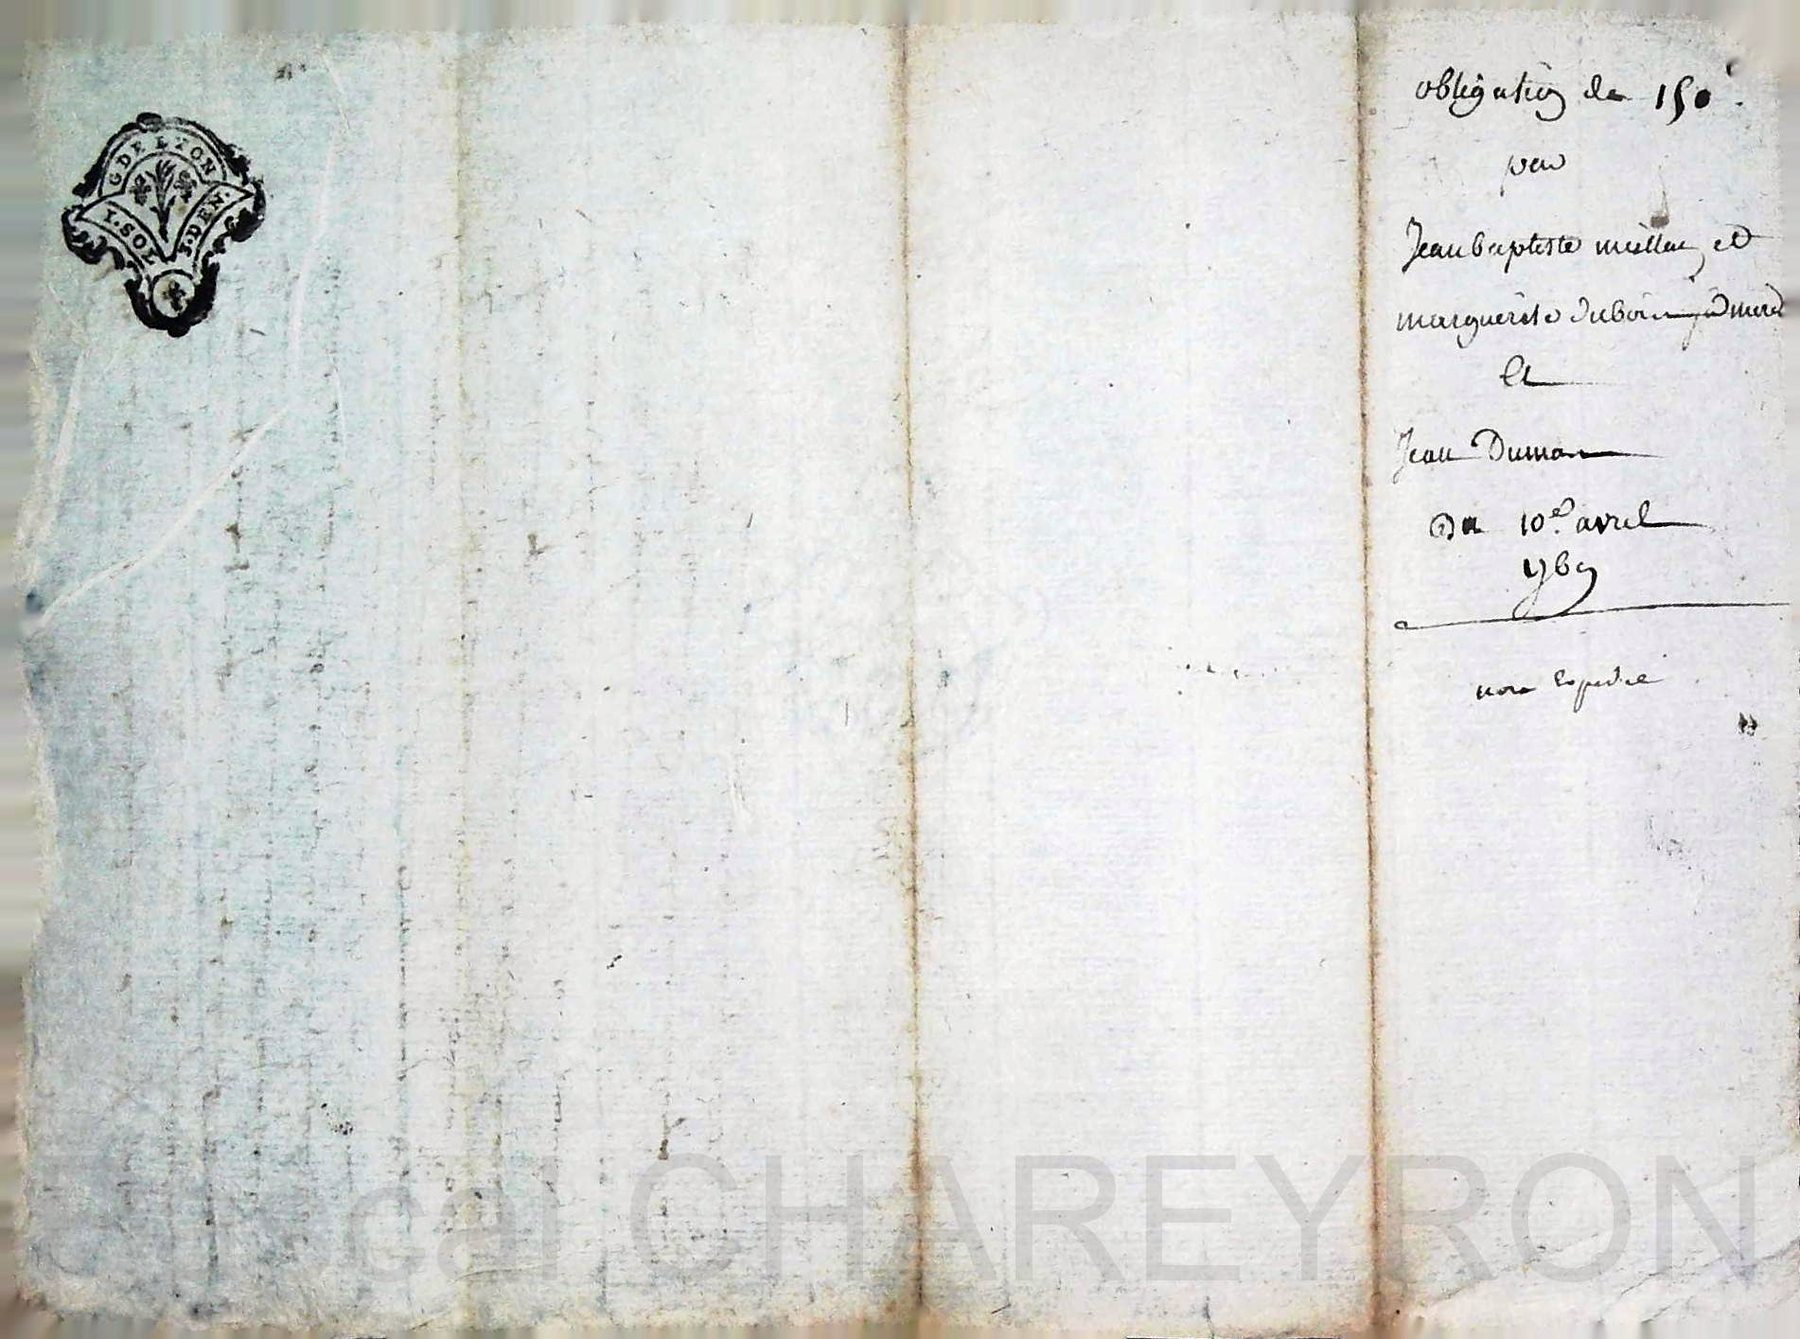 G. DE LYON
1. SOL 4. DEN.
obligation de 150
par
Jean baptiste et
marguerite mere
et
Jean Dumas
Du 10e avril
1769
non expedié
cal CHAREYRON